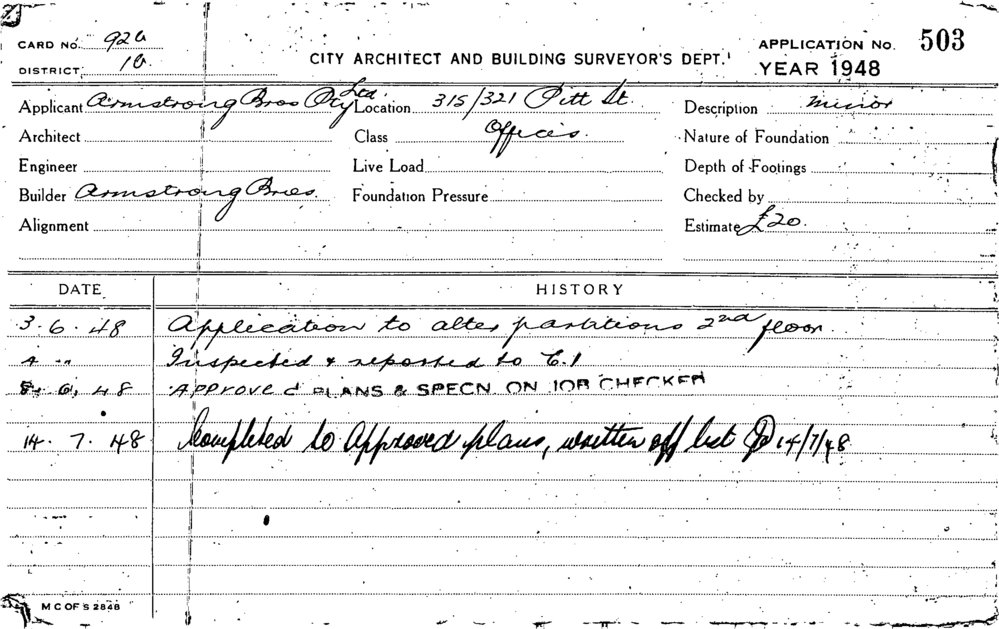 CARD No. 926
DISTRICT 10
CITY ARCHITECT AND BUILDING SURVEYOR'S DEPT.
APPLICATION No. 503
YEAR 1948
Applicant Armstrong Bros Pty Ltd. Location 315/321 Pitt St. Description minor
Architect Class Offices. Nature of Foundation
Engineer Live Load Depth of Footings
Builder Armstrong Bros. Foundation Pressure Checked by
Alignment Estimate £20.
DATE HISTORY
3.6.48 Application to alter partitions 2nd floor.
4 " " Inspected & reported to C.I
8. 6. 48 Approved PLANS & SPECN. ON JOB CHECKED
14. 7. 48 Completed to Approved plans, written off list 14/7/48
M C OF S 2848